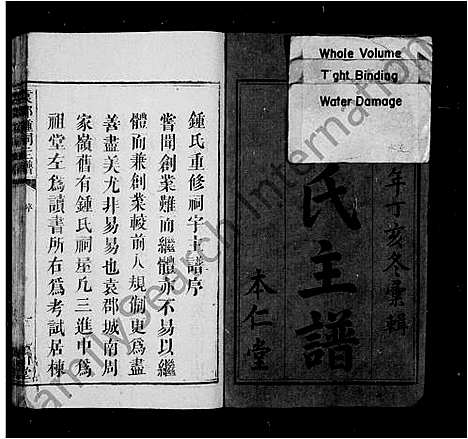 Whole Volume
Tight Binding
Water Damage
年丁亥冬彙輯
氏主譜
本仁堂
鍾氏重修祠宇主譜序
嘗聞創業難而繼體亦不易以繼
體而兼創業較前人規制更爲盡
善盡美尤非易易也袁郡城南周
家嶺舊有鍾氏祠屋凡三進中爲
祖堂左爲讀書所右爲考試居棟
FamilySearch International